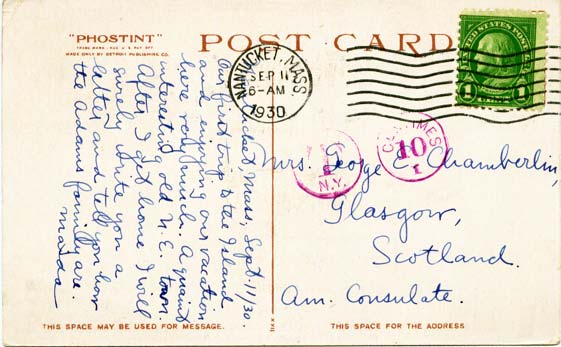 "PHOSTINT"
TRADE MARK REG U S PAT OFF
MADE ONLY BY DETROIT PUBLISHING CO.
POST CARD
NANTUCKET, MASS
SEP 11
6-AM
1930
UNITED STATES POSTAGE
1 1
Mass, Sept. 11/30.
Our first trip to the Island
and enjoying our vacation
here very much. A quaint
interesting old N. E. town.
After I get home I will
surely write you a
letter and tell you how
the Adams family are.
N.Y.
CENTIMES
10
Mrs. George Chamberlin,
Glasgow,
Scotland.
Am. Consulate.
THIS SPACE MAY BE USED FOR MESSAGE.
THIS SPACE FOR THE ADDRESS